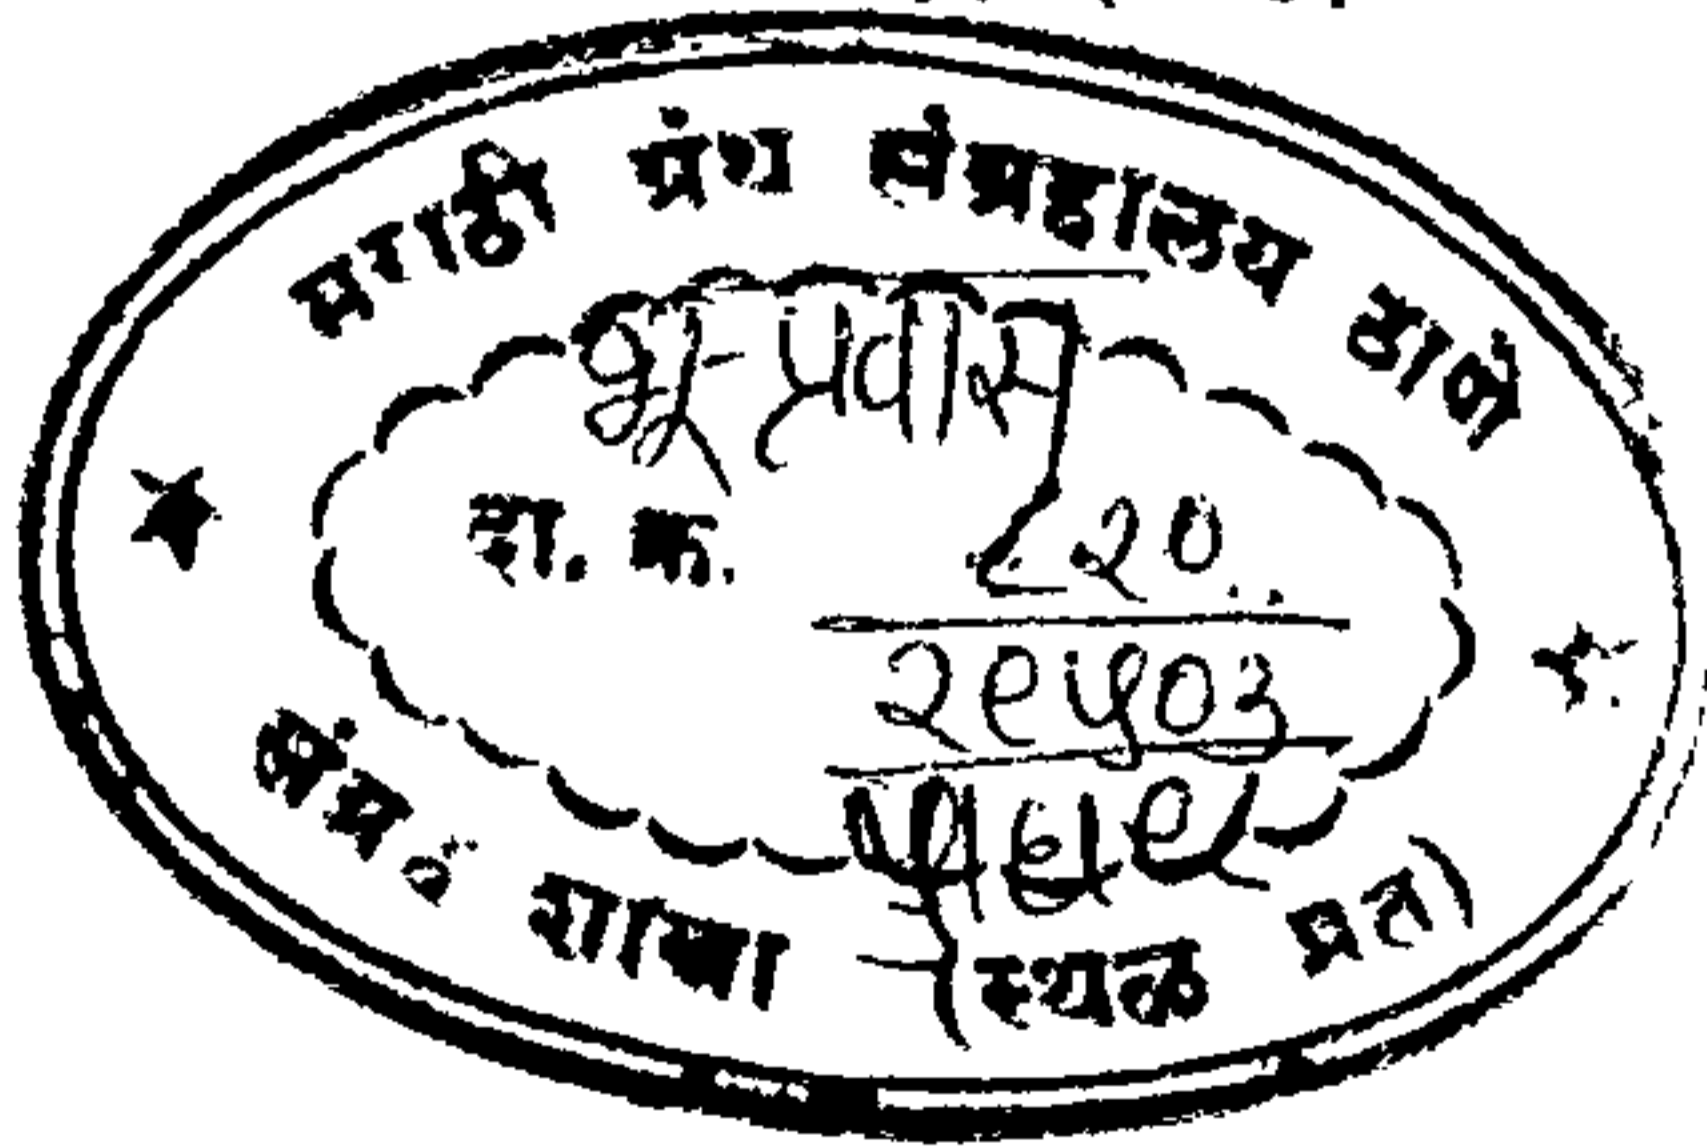 मराठी ग्रंथ संग्रहालय ठाणे
भू-प्रवास
दा. क्र. ८२०
२९५०३
संग्रह शाखा (स्थळ प्रत)